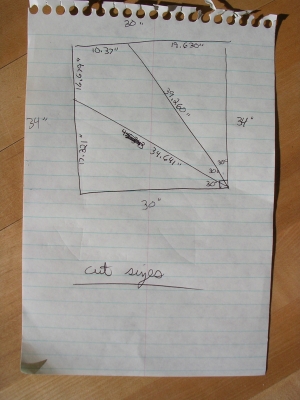 30"
10.37" 19.630"
16.679"
39.260"
34" 34"
34.641"
17.321"
30°
30°
30°
30"
cut sizes